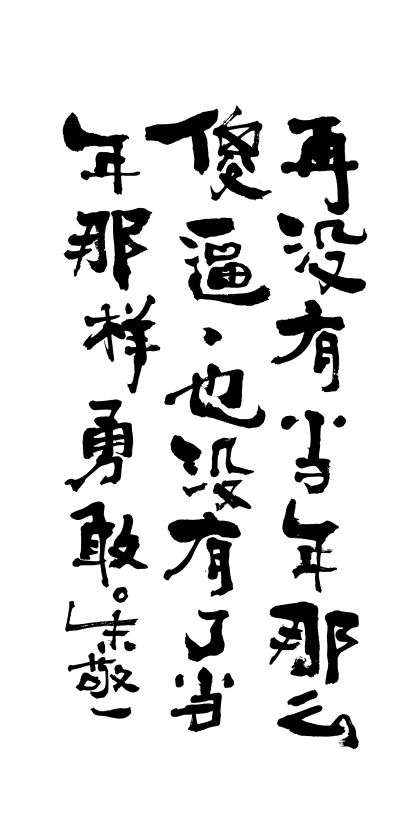 再没有当年那么
傻逼，也没有了当
年那样勇敢。朱敬一